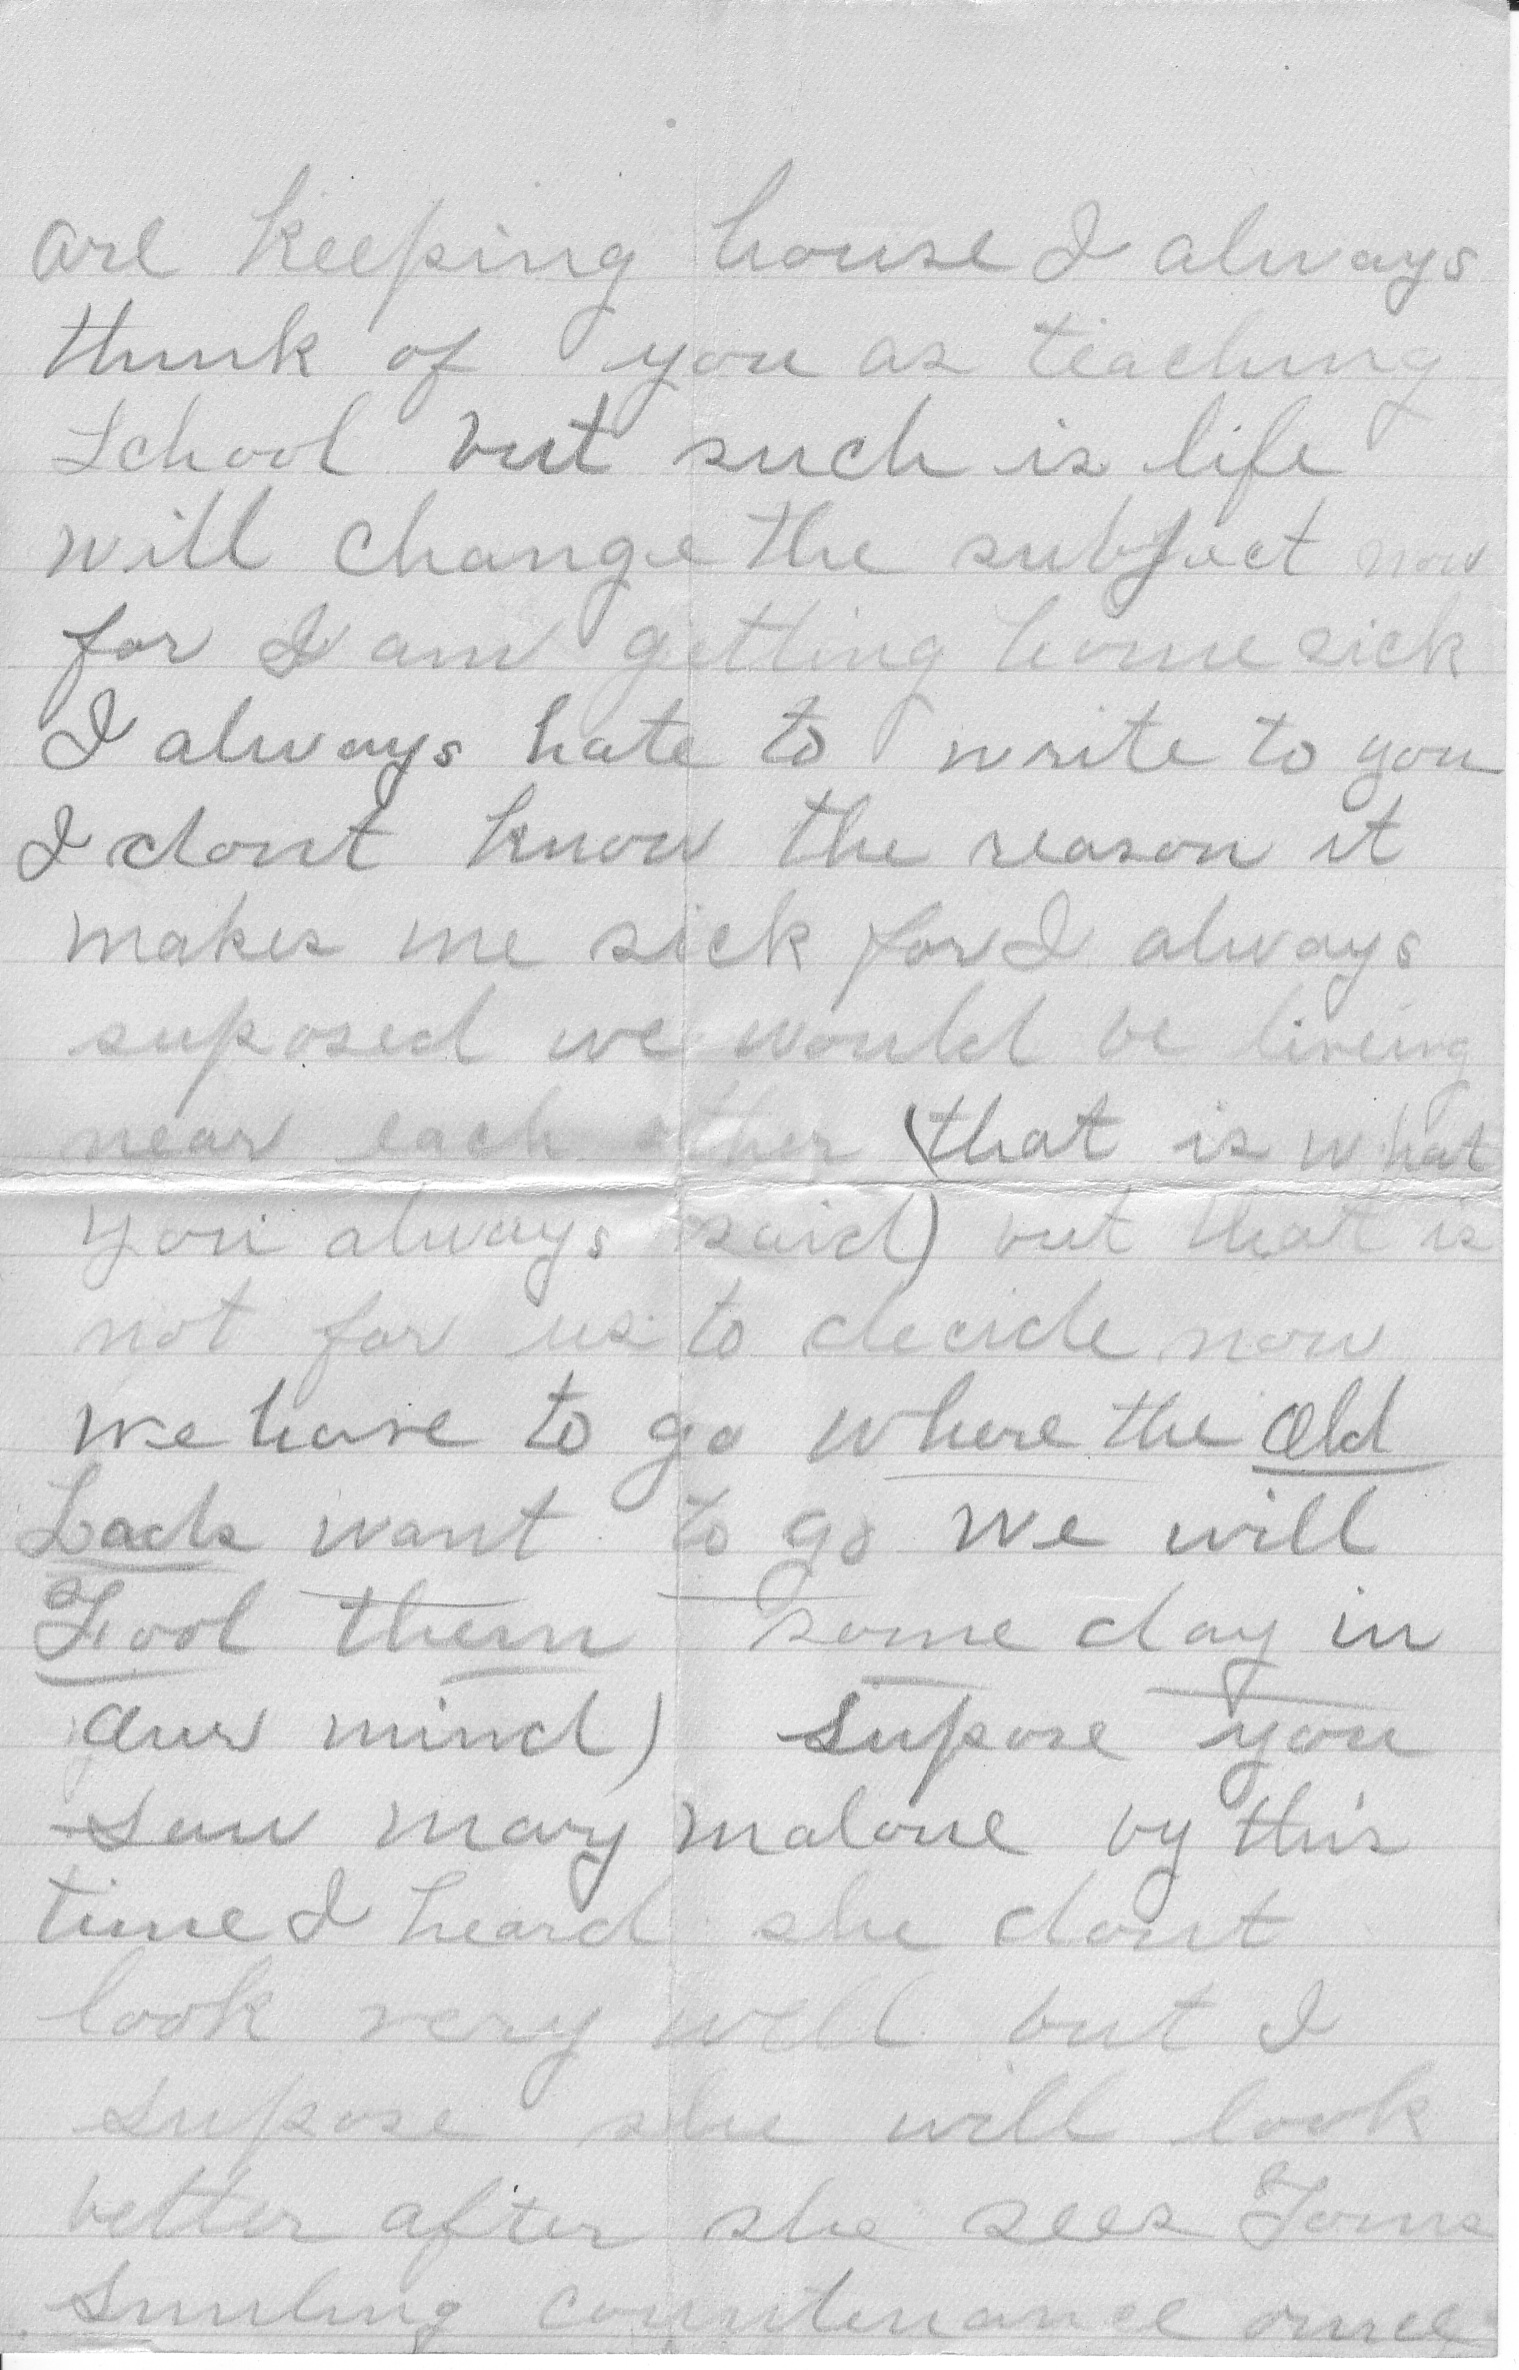 are keeping house I always
think of you as teaching
School but such is life
will change the subject now
for I am getting home sick
I always hate to write to you
I dont know the reason it
makes me sick for I always
suposed we would be liveing
near each other (that is what
you always said) but that is
not for us to decide now
we have to go where the Old
Lads want to go we will
Fool them some day in
Our mind) Supose you
Saw mary malone by this
time I heard she dont
look very well but I
supose she will look
better after she sees Toms
Smiling countenance once